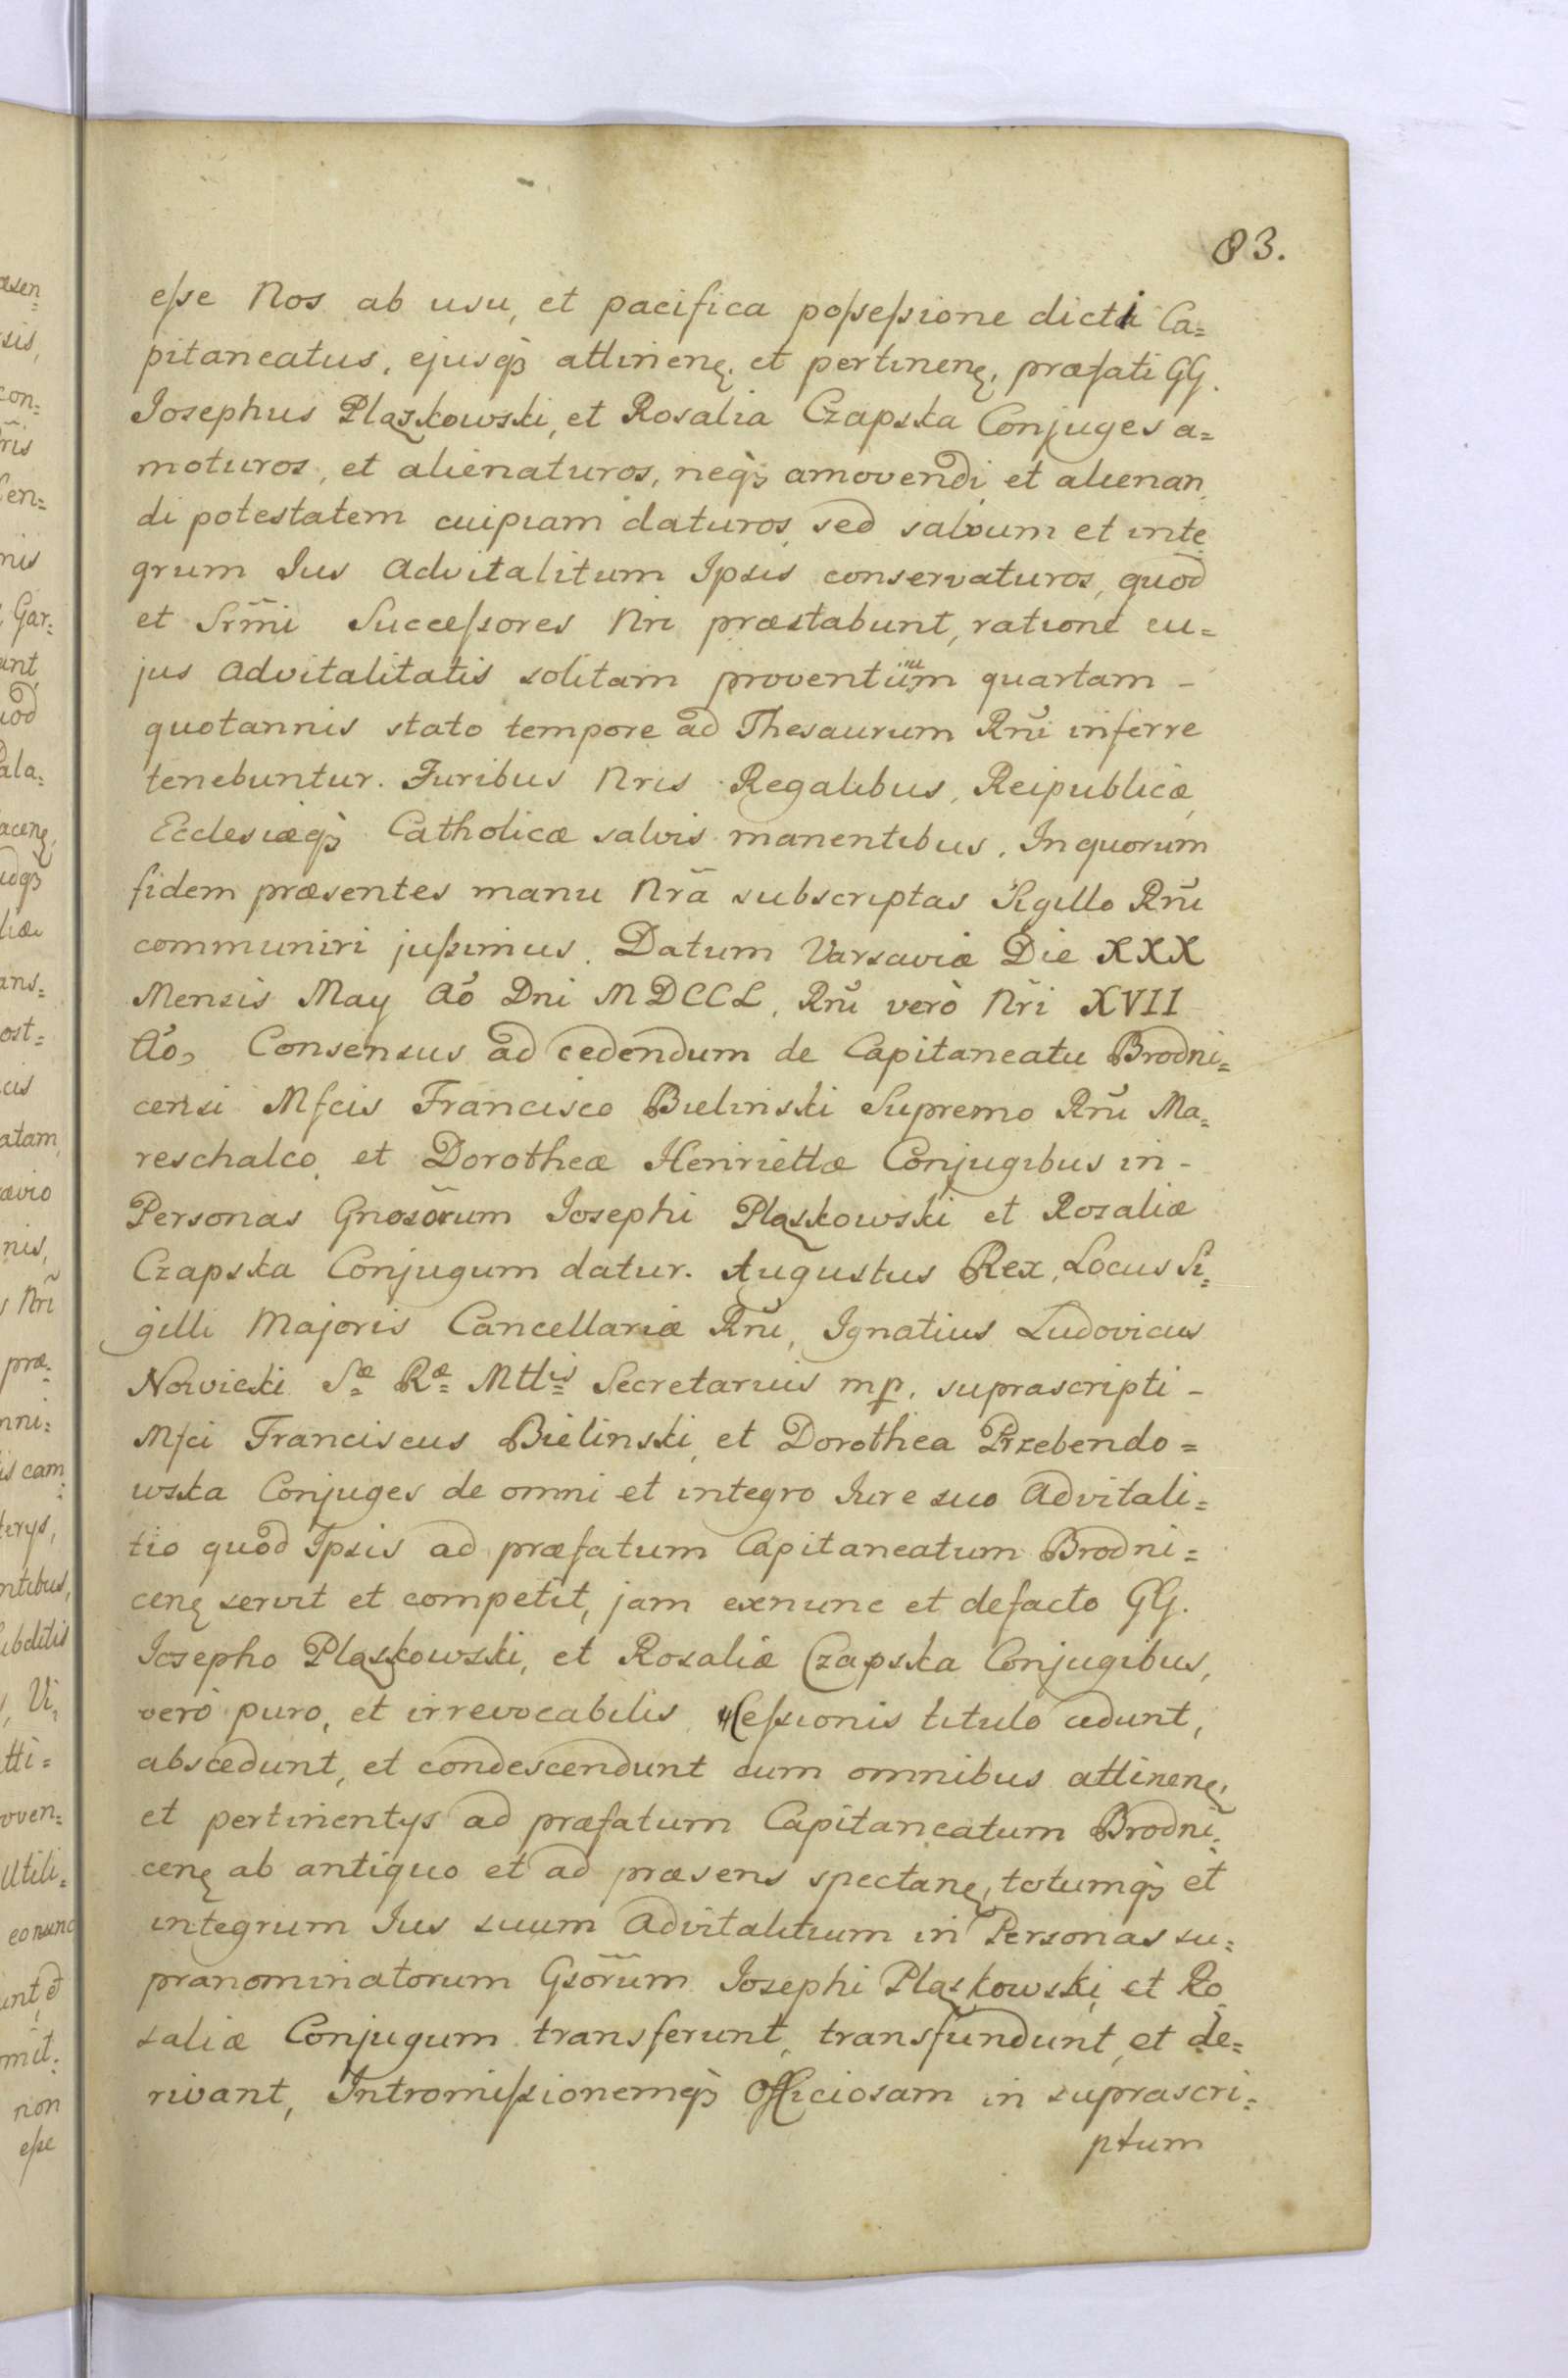 83.
esse Nos ab usu, et pacifica possessione dicti Ca=
pitaneatus, ejusq3 attinen. et pertinen, præfati GG.
Josephus Pląskowski, et Rosalia Czapska Conjuges a=
moturos, et alienaturos, neq3 amovendi et alienan,
di potestatem cuipiam daturos, sed salvum et inte
grum Jus Advitalitum Ipsis conservaturos, quod
et Srm̃i Successores Nri præstabunt, ratione cu=
jus Advitalitatis solitam proventuum quartam -
quotannis stato tempore ad Thesaurum Rñi inferre
tenebuntur. Juribus Nris Regalibus, Reipublicæ,
Ecclesiæq3 Catholicæ salvis manentibus. In quorum
fidem præsentes manu Nrã subscriptas Sigillo Rñi
communiri jussimus. Datum Varsaviæ Die XXX
Mensis May Aõ Dni MDCCL, Rñi verò Nr̃i XVII
Aõ, Consensus ad cedendum de Capitaneatu Brodni=
censi Mfcis Francisco Bielinski Supremo Rñi Ma=
reschalco, et Dorotheæ Henriettæ Conjugibus in -
Personas Gnosõrum Josephi Pląskowski et Rosaliæ
Czapska Conjugum datur. Augustus Rex, Locus Si=
gilli Majoris Cancellariæ Rñi, Ignatius Ludovicus
Nowicki Sæ= Ræ= Mttis= Secretarius mp. suprascripti -
Mfci Franciscus Bielinski, et Dorothea Przebendo=
wska Conjuges de omni et integro Jure suo Advitali=
tio quod Ipsis ad præfatum Capitaneatum Brodni=
cen servit et competit, jam exnunc et defacto GG.
Josepho Pląskowski, et Rosaliæ Czapska Conjugibus,
vero puro, et irrevocabilis Cessionis titulo cedunt,
abscedunt, et condescendunt cum omnibus attinen,
et pertinentys ad præfatum Capitaneatum Brodni=
cen ab antiquo et ad præsens spectan, totumq3 et
integrum Jus suum Advitalitium in Personas su=
pranominatorum Gsõrum Josephi Pląskowski, et Ro
saliæ Conjugum transferunt, transfundunt, et de=
rivant, Intromissionemq3 Officiosam in suprascri=
ptum